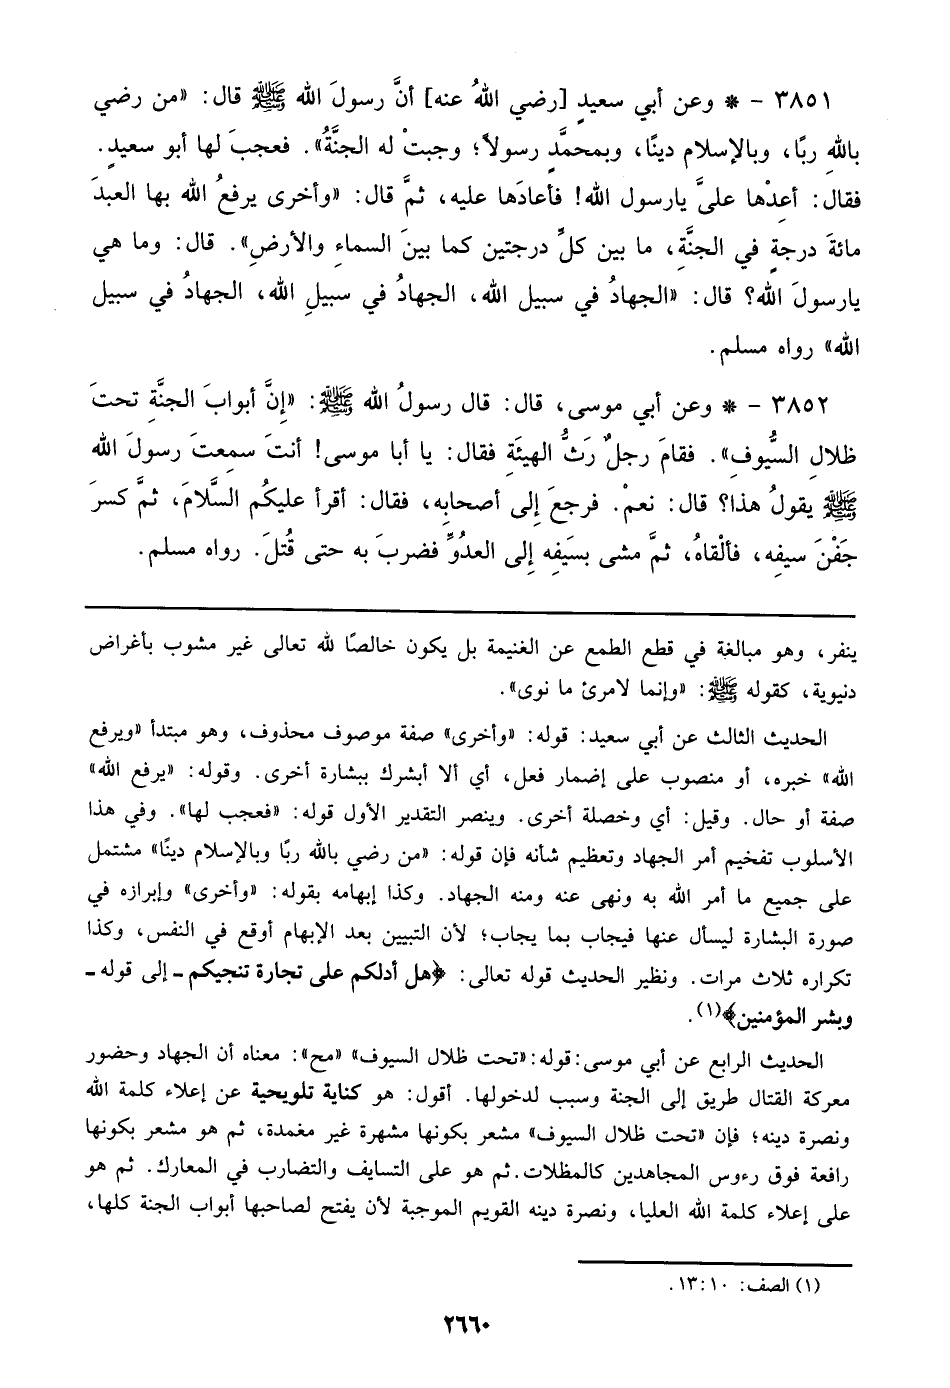 ٣٨٥١ – * وعن أبي سعيدٍ [رضي اللهُ عنه] أنَّ رسولَ الله ﷺ قال: «من رضي
باللهِ ربًا، وبالإسلام دينًا، وبمحمَّدٍ رسولاً؛ وجبتْ له الجنَّةُ». فعجبَ لها أبو سعيدٍ.
فقال: أعِدْها عليَّ يارسول الله! فأعادَها عليه، ثمَّ قال: «وأخرى يرفعُ الله بها العبدَ
مائةَ درجةٍ في الجنَّةِ، ما بين كلِّ درجتين كما بينَ السماءِ والأرضِ». قال: وما هي
يارسولَ الله؟ قال: «الجهادُ في سبيل الله، الجهادُ في سبيلِ الله، الجهادُ في سبيل
الله» رواه مسلم.
٣٨٥٢ – * وعن أبي موسى، قال: قال رسولُ الله ﷺ: «إنَّ أبوابَ الجنَّةِ تحتَ
ظلالِ السُّيوفِ». فقامَ رجلٌ رَثُّ الهيئَةِ فقال: يا أبا موسى! أنتَ سمعتَ رسولَ الله
ﷺ يقولُ هذا؟ قال: نعمْ. فرجعَ إلى أصحابِه، فقال: أقرأ عليكُم السَّلامَ، ثمَّ كسرَ
جَفْنَ سيفِه، فألْقاهُ، ثمَّ مشى بسَيفِه إلى العدُوِّ فضربَ به حتى قُتلَ. رواه مسلم.
ينفر، وهو مبالغة في قطع الطمع عن الغنيمة بل يكون خالصًا لله تعالى غير مشوب بأغراض
دنيوية، كقوله ﷺ: «وإنما لامرئ ما نوى».
الحديث الثالث عن أبي سعيد: قوله: «وأخرى» صفة موصوف محذوف، وهو مبتدأ «ويرفع
الله» خبره، أو منصوب على إضمار فعل، أي ألا أبشرك ببشارة أخرى. وقوله: «يرفع الله»
صفة أو حال. وقيل: أي وخصلة أخرى. وينصر التقدير الأول قوله: «فعجب لها». وفي هذا
الأسلوب تفخيم أمر الجهاد وتعظيم شأنه فإن قوله: «من رضي بالله ربًا وبالإسلام دينًا» مشتمل
على جميع ما أمر الله به ونهى عنه ومنه الجهاد. وكذا إبهامه بقوله: «وأخرى» وإبرازه في
صورة البشارة ليسأل عنها فيجاب بما يجاب؛ لأن التبيين بعد الإبهام أوقع في النفس، وكذا
تكراره ثلاث مرات. ونظير الحديث قوله تعالى: ﴿هل أدلكم على تجارة تنجيكم – إلى قوله –
وبشر المؤمنين﴾(١).
الحديث الرابع عن أبي موسى: قوله: «تحت ظلال السيوف» «مح»: معناه أن الجهاد وحضور
معركة القتال طريق إلى الجنة وسبب لدخولها. أقول: هو كناية تلويحية عن إعلاء كلمة الله
ونصرة دينه؛ فإن «تحت ظلال السيوف» مشعر بكونها مشهرة غير مغمدة، ثم هو مشعر بكونها
رافعة فوق رءوس المجاهدين كالمظلات. ثم هو على التسايف والتضارب في المعارك. ثم هو
على إعلاء كلمة الله العليا، ونصرة دينه القويم الموجبة لأن يفتح لصاحبها أبواب الجنة كلها،
(١) الصف: ١٠:١٣.
٢٦٦٠